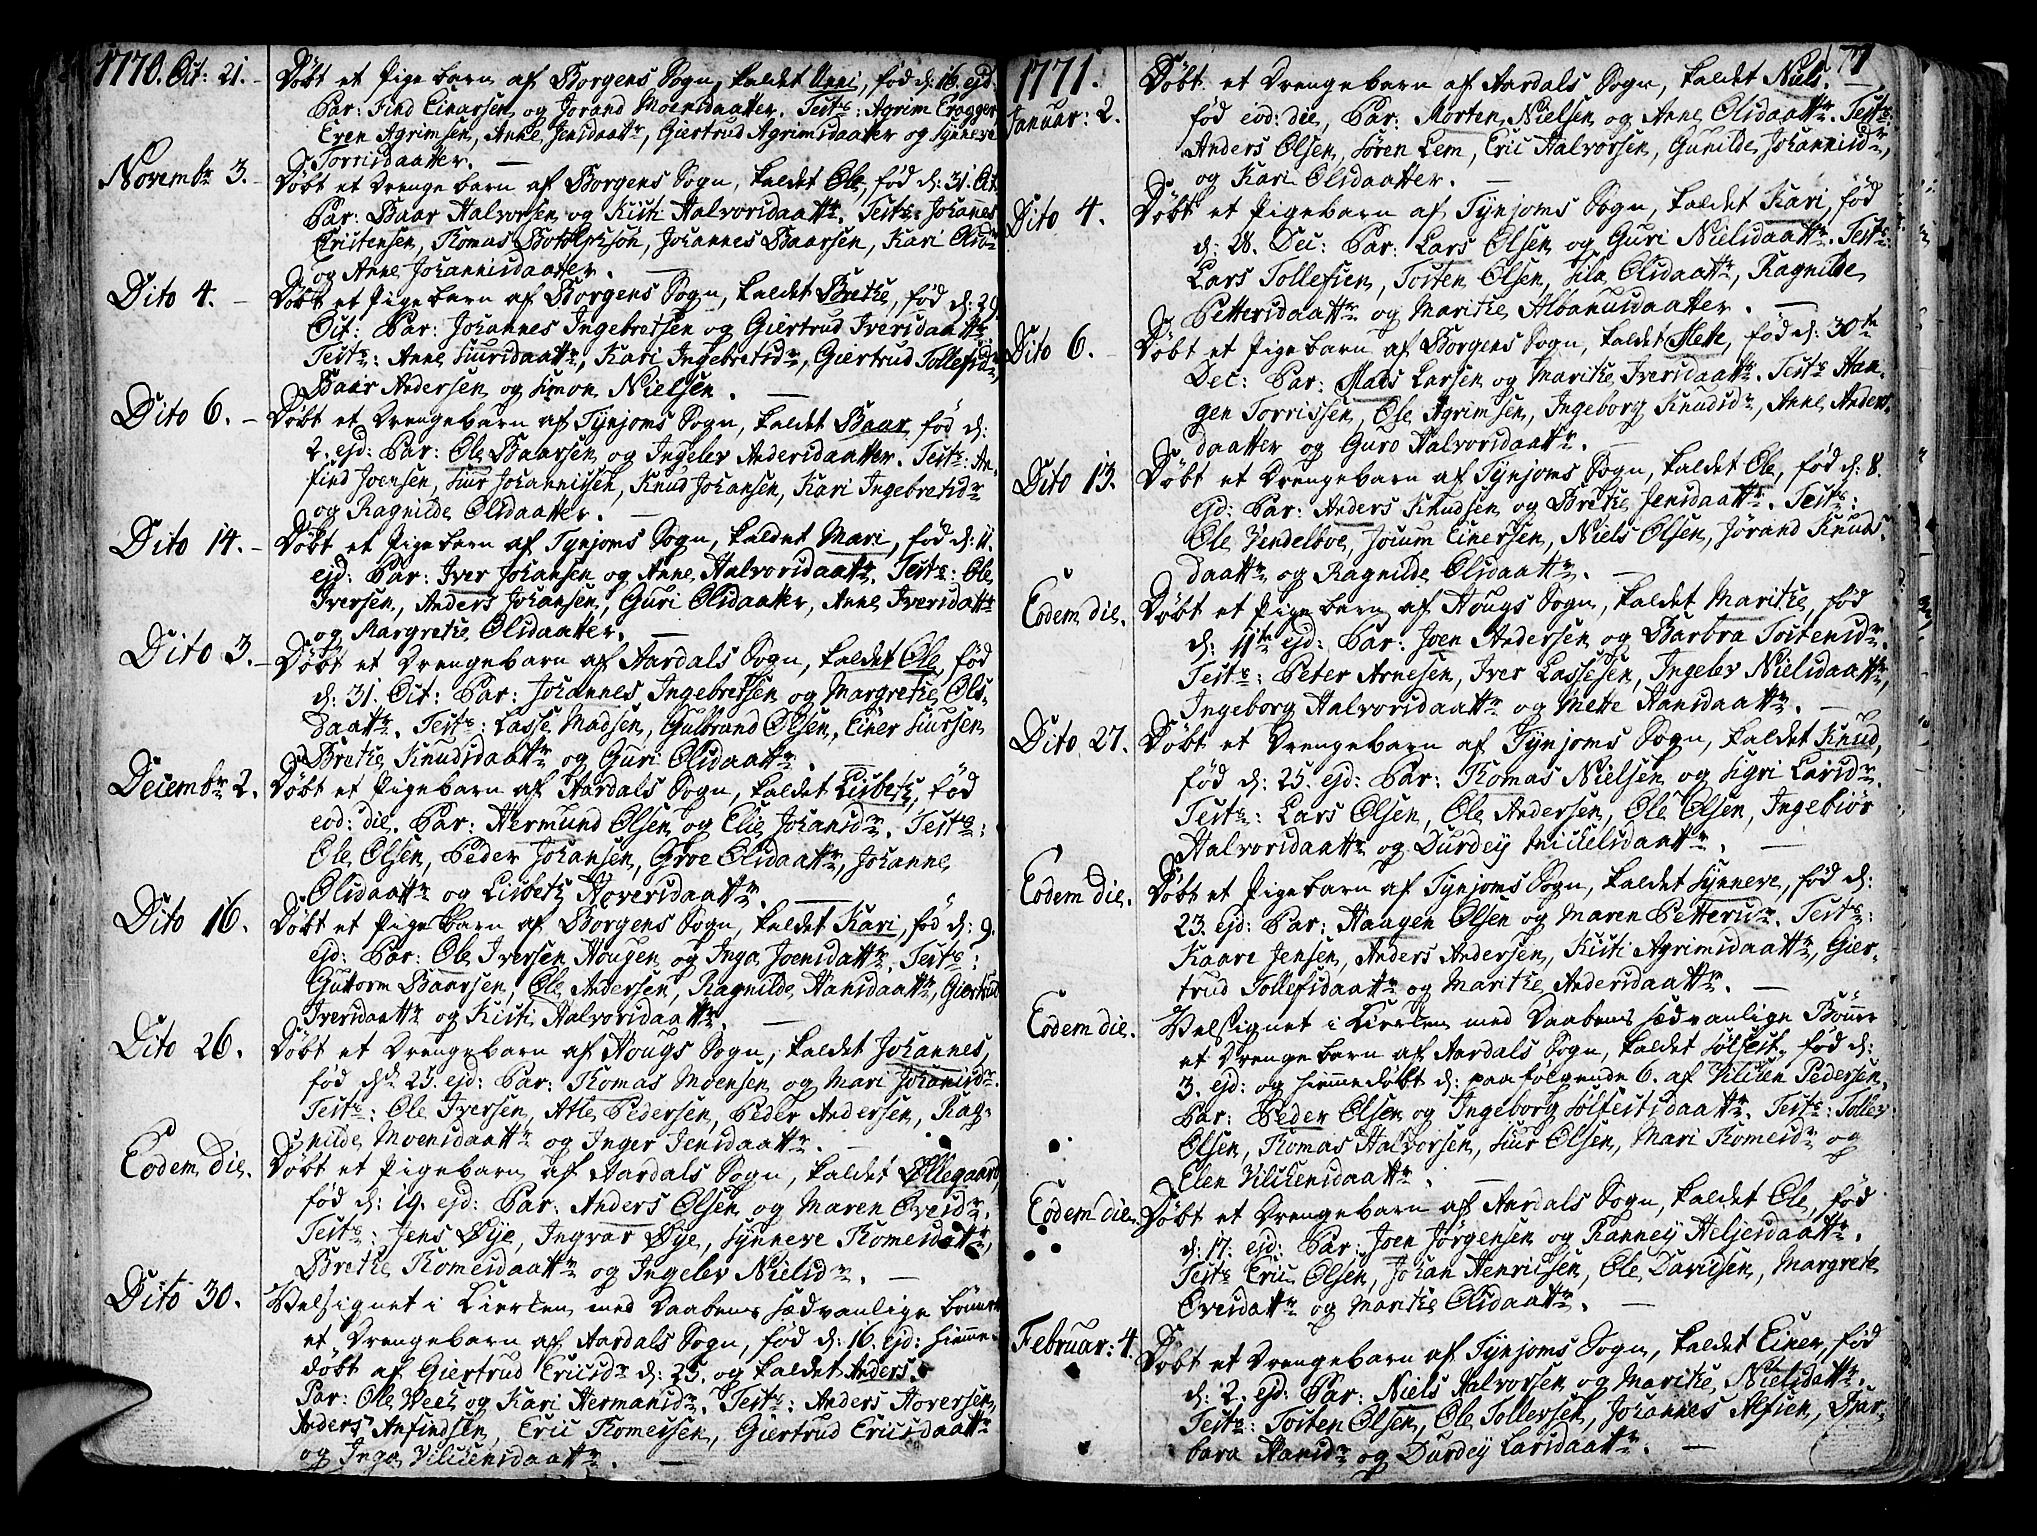 1770. Oct: 21. – Döbt et Pige barn af Borgens Sogn, kaldet Unni, föd d: 16. ejd:
Par: Find Einarsen og Jorand Moensdaatter. Test: Agrim Crogger
Even Agrimsen, Anne Jensdaattr, Giertrud Agrimsdaatter og Synneve
Torrisdaatter. –
Novembr 3. – Döbt et Drenge barn af Borgens Sogn, kaldet Ole, föd d: 31. Oct
Par: Baar Halvorsen og Kisti Halvorsdaattr. Tests: Johannes
Cristensen, Tomas Botolphsön, Johannes Baarsen, Kari Olsdr
og Anne Johannisdaatter. –
Dito 4. – Döbt et Pige barn af Borgens Sogn, kaldet Brethe, föd d: 29
Oct: Par: Johannes Ingebretsen og Giertrud Iversdaattr
Tests: Anne Siursdaattr, Kari Ingebretsdr, Giertrud Tollefsdr,
Baar Andersen og Simon Nielsen. –
Dito 6. – Döbt et Drengebarn af Tynjoms Sogn, kaldet Baar, föd d:
2. ejd: Par: Ole Baarsen og Ingelev Andersdaatter. Tests: An-
find Joensen, Siur Johannissen, Knud Johansen, Kari Ingebretsdr
og Ragnilde Olsdaatter. –
Dito 14. – Döbt et Pige barn af Tynjoms Sogn, kaldet Mari, föd d: 11.
ejd: Par: Iver Johansen og Anne Halvorsdaattr. Tests: Ole
Iversen, Anders Johansen, Guri Olsdaatter, Anne Iversdattr
og Margrethe Olsdaatter. –
Dito 3. – Döbt et Drengebarn af Aardals Sogn, kaldet Ole, föd
d: 31. Oct: Par: Johannes Ingebretsen og Margrethe Ols-
daattr. Tests: Lasse Madsen, Gulbrand Olsen, Einer Siursen
Brethe Knudsdaattr og Guri Olsdaattr.
Decembr 2. Döbt et Pigebarn af Aardals Sogn, kaldet Lisbeth, föd
eod: die. Par: Hermund Olsen og Elie Johansdr. Tests:
Ole Olsen, Peder Johansen, Groe Olsdaattr, Johanne
Olsdaattr og Lisbeth Hoversdaattr. –
Dito 16. Döbt et Pige barn af Borgens Sogn, kaldet Kari, föd d: 9.
ejd: Par: Ole Iversen Hougen og Inga Joensdattr. Tests:
Guttorm Baarsen, Ole Andersen, Ragnilde Hansdaattr, Giertrud
Iversdaattr og Kisti Halvorsdaattr. –
Dito 26. Döbt et Drengebarn af Hougs Sogn, kaldet Johannes,
föd d: 25. ejd: Par: Tomas Moensen og Mari Johanisdr.
Tests: Ole Iversen, Atle Pedersen, Peder Andersen, Rag-
nilde Moensdaattr og Inger Jensdaattr. –
Eodem die. Döbt et Pigebarn af Aardals Sogn, kaldet Ollegaard,
föd d: 19. ejd: Par: Anders Olsen og Maren Oversdr.
Tests: Jens Øye, Ingvar Øye, Synneve Tomesdattr,
Brethe Tomesdaattr og Ingelev Nielsdr. –
Dito 30. Velsignet i Kierken med Daabens sædvanlige bönner
et Drengebarn af Aardals Sogn, föd d: 16. ejd: hiemme-
döbt af Giertrud Ericsdr d: 25. og kaldet Anders.
Par: Ole Wee og Kari Hermansdr. Tests: Anders Hoversen,
Anders Anfindsen, Eric Tomessen, Giertrud Ericsdaattr
og Inga Vilchensdaattr. –
77
1771.
Januar: 2. Döbt et Drengebarn af Aardals Sogn, kaldet Niels. –
föd eod: die, Par: Morten Nielsen og Anne Olsdaattr. Tests:
Anders Olsen, Sören Lem, Eric Halvorsen, Gunilde Johannisdr,
og Kari Olsdaatter. –
Dito 4. Döbt et Pigebarn af Tynjoms Sogn, kaldet Kari, föd
Dec: Par: Lars Olsen og Guri Nielsdaattr. Tests:
Lars Tollefsen, Tosten Olsen, Sila Olsdaattr, Ragnilde
Pettersdaattr og Marithe Albanusdaatter. –
Dito 6. – Döbt et Pige barn af Borgens Sogn, kaldet Mette, föd d: 30te
Dec: Par: Mads Larsen og Marithe Iversdaattr. Tests Haa-
gen Torrissen, Ole Agrimsen, Ingeborg Knudsdr, Anne Anders
daatter og Guro Halvorsdaattr. –
Dito 13. Döbt et Drengebarn af Tynjoms Sogn, kaldet Ole, föd d: 8.
ejd: Par: Anders Knudsen og Brethe Jensdaattr. Tests:
Ole Vendelboe, Jocum Einersen, Niels Olsen, Jorand Knuds-
daattr og Ragnilde Olsdaattr. –
Eodem die. Döbt et Pige barn af Hougs Sogn, kaldet Marithe, föd
d: 11te ejd: Par: Joen Andersen og Barbra Tostensdr.
Tests: Peter Arnesen, Iver Lassesen, Ingelev Nielsdaattr,
Ingeborg Halvorsdaattr og Mette Hansdaattr. –
Dito 27. Döbt et Drengebarn af Tynjoms Sogn, kaldet Knud,
föd d: 25. ejd: Par: Tomas Nielsen og Sigri Larsdr.
Tests: Lars Olsen, Ole Andersen, Ole Olsen, Ingebiör
Halvorsdaattr og Durdey Mickelsdaattr. –
Eodem die. Döbt et Pigebarn af Tynjoms Sogn, kaldet Synneve, föd d:
23. ejd: Par: Haagen Olsen og Maren Pettersdr. Tests:
Kaare Jensen, Anders Andersen, Kisti Agrimsdaattr, Gier-
trud Tollefsdaattr og Marithe Andersdaattr. –
Eodem die. Velsignet i Kierken med Daabens sædvanlige Bönner
et Drenge barn af Aardals Sogn, kaldet Sölfest, föd d:
3. ejd: og hiemmedöbt d: paafölgende 6. af Vilchen Pedersen.
Par: Peder Olsen og Ingeborg Sölfestsdaattr. Tests: Tollev
Olsen, Tomas Halvorsen, Siur Olsen, Mari Tomesdr og
Elen Vilchensdaattr. –
Eodem die. Döbt et Drengebarn af Aardals Sogn, kaldet Ole, föd
d: 17. ejd: Par: Joen Jörgensen og Ranney Heljesdaattr.
Tests Eric Olsen, Johan Henricsen, Ole Davidsen, Margrete
Oversdattr og Marithe Olsdaattr. –
Februar: 4. Döbt et Drengebarn af Tynjoms Sogn, kaldet Einer, föd
d: 2. ejd: Par: Niels Halvorsen og Marithe Nielsdattr.
Tests: Tosten Olsen, Ole Tollefsen, Johannes Alfsen, Bar-
bara Hansdr og Durdey Larsdaattr. –